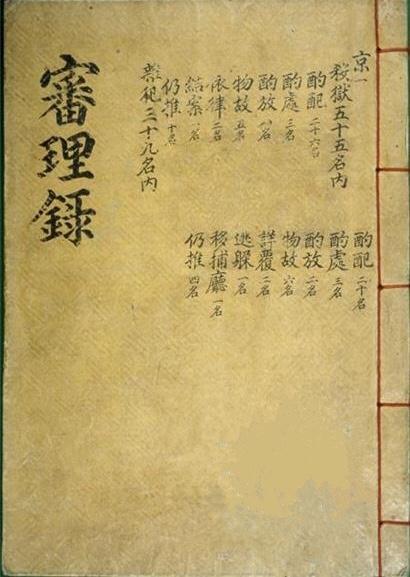 審理錄
京一
殺獄五十五名內
酌配二十六名
酌處三名
酌放八名
物故五名
依律二名
結案一名
仍推十名
雜犯三十九名內
酌配二十名
酌處三名
酌放二名
物故六名
詳覆二名
逃躱一名
移捕廳一名
仍推四名